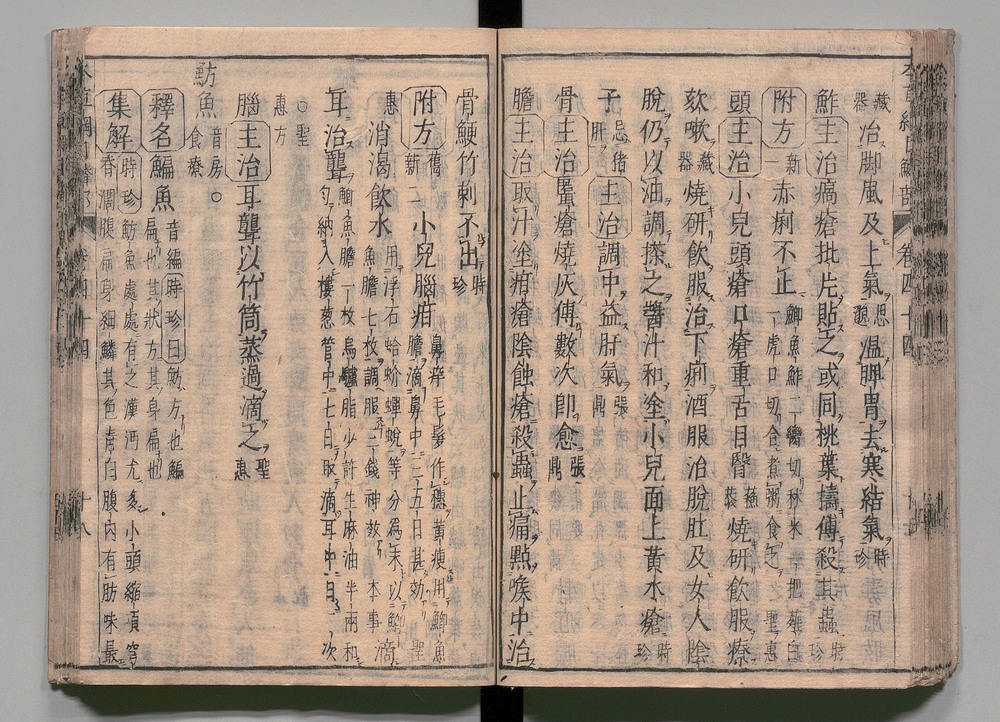 藏器治脚風及上氣思邈温脾胃去寒結氣時珍
鮓主治癘瘡批片貼之或同桃葉擣傅殺其蟲時珍
附方新一赤痢不止鯽魚鮓二臠切秫米一把薤白一虎口切合煮粥食之聖惠
頭主治小兒頭瘡口瘡重舌目瞖蘇恭燒研飲服療
欬嗽藏器燒研飲服治下痢酒服治脫肛及女人陰
脫仍以油調搽之醬汁和塗小兒面上黃水瘡時珍
子忌猪肝主治調中益肝氣張鼎
骨主治䘌瘡燒灰傅數次卽愈張鼎
膽主治取汁塗疳瘡陰蝕瘡殺蟲止痛點喉中治
骨鯁竹刺不出時珍
附方舊一新二小兒腦疳鼻痒毛髮作穗黃瘦用鯽魚膽滴鼻中三五日甚効聖惠
消渴飲水用浮石蛤蚧蟬蛻等分爲末以鯽魚膽七枚調服三錢神效本事
滴耳治聾鯽魚膽一枚烏驢脂少許生麻油半兩和勻納入樓葱管中七日取滴耳中日二次
○聖惠方
腦主治耳聾以竹筒蒸過滴之聖惠
魴魚音房○食療
釋名鯿魚音編時珍曰魴方也鯿扁也其狀方其身扁也
集解時珍魴魚處處有之漢沔尤多小頭縮項穹脊濶腹扁身細鱗其色青白腹內有肪味最
卷四十四
卷四十四
十八